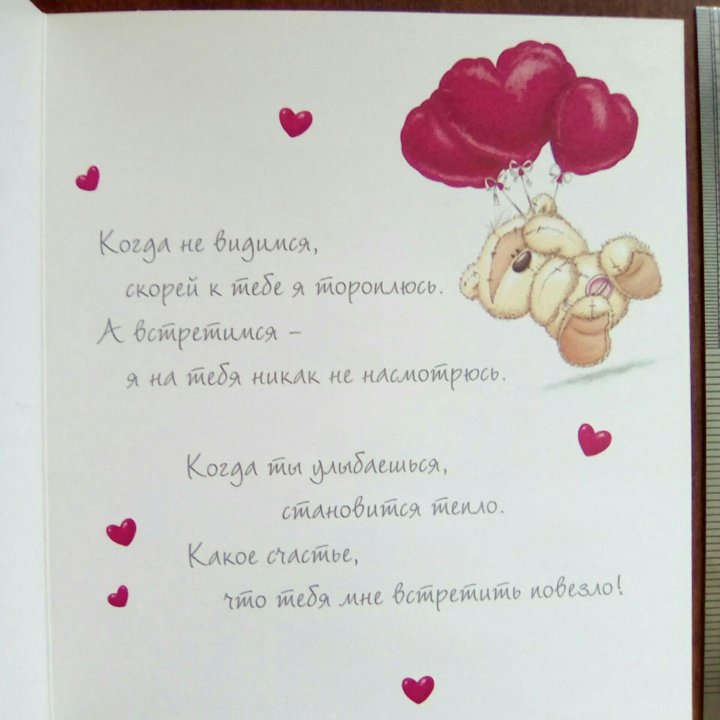 Когда не видимся,
скорей к тебе я тороплюсь.
А встретимся –
я на тебя никак не насмотрюсь.
Когда ты улыбаешься,
становится тепло.
Какое счастье,
что тебя мне встретить повезло!